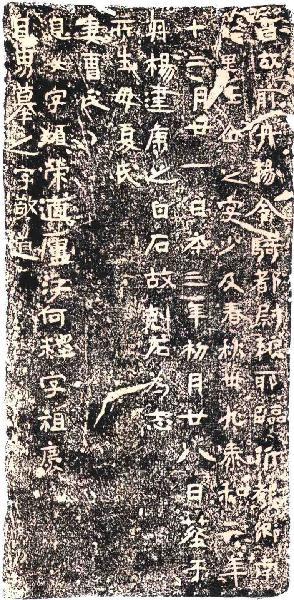 晉故前丹楊令騎都尉琅耶臨沂都鄉南
仁里王仚之字少及春秋卅九泰和二年
十二月廿一日卒三年初月廿八日葬于
丹楊建康之白石故刻石為志
所生母夏氏
妻曹氏
息女字媚榮適廬江何粹字祖慶
息男摹之字敬道